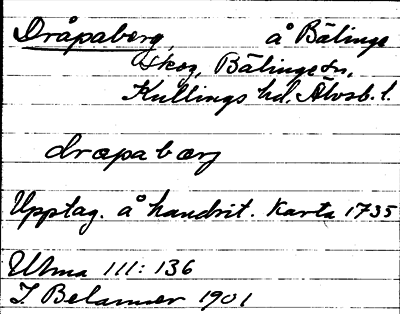 Dråpaberg, å Bälinge
skog, Bälinge sn,
Kullings hd, Älvsb. l.
dræpabærj
Upptag. å handrit. Karta 1735
Ulma 111: 136
I. Belanner 1901